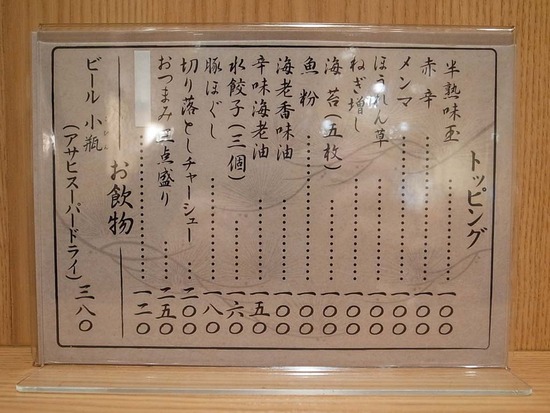 トッピング
半熟味玉 一〇〇
赤辛 一〇〇
メンマ 一〇〇
ほうれん草 一〇〇
ねぎ増し 一〇〇
海苔（五枚） 一〇〇
魚粉 一〇〇
海老香味油 一〇〇
辛味海老油 一五〇
水餃子（三個） 一六〇
豚ほぐし 一八〇
切り落としチャーシュー 二〇〇
おつまみ三点盛り 二五〇
一二〇
お飲物
ビール 小瓶
（アサヒスーパードライ） 三八〇